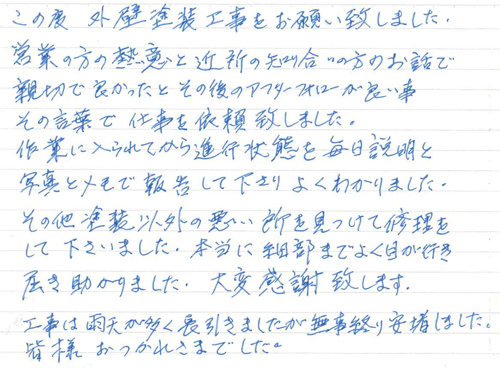 この度 外壁塗装工事をお願い致しました.
営業の方の熱意と近所の知り合いの方のお話で
親切で良かったとその後のアフターフォローが良い事
その言葉で仕事を依頼致しました。
作業に入られてから進行状態を毎日説明と
写真とメモで報告して下さりよくわかりました.
その他塗装以外の悪い所を見つけて修理を
して下さいました. 本当に細部までよく目が行き
届き助かりました. 大変感謝致します.
工事は雨天が多く長引きましたが無事終り安堵しました。
皆様 おつかれさまでした。